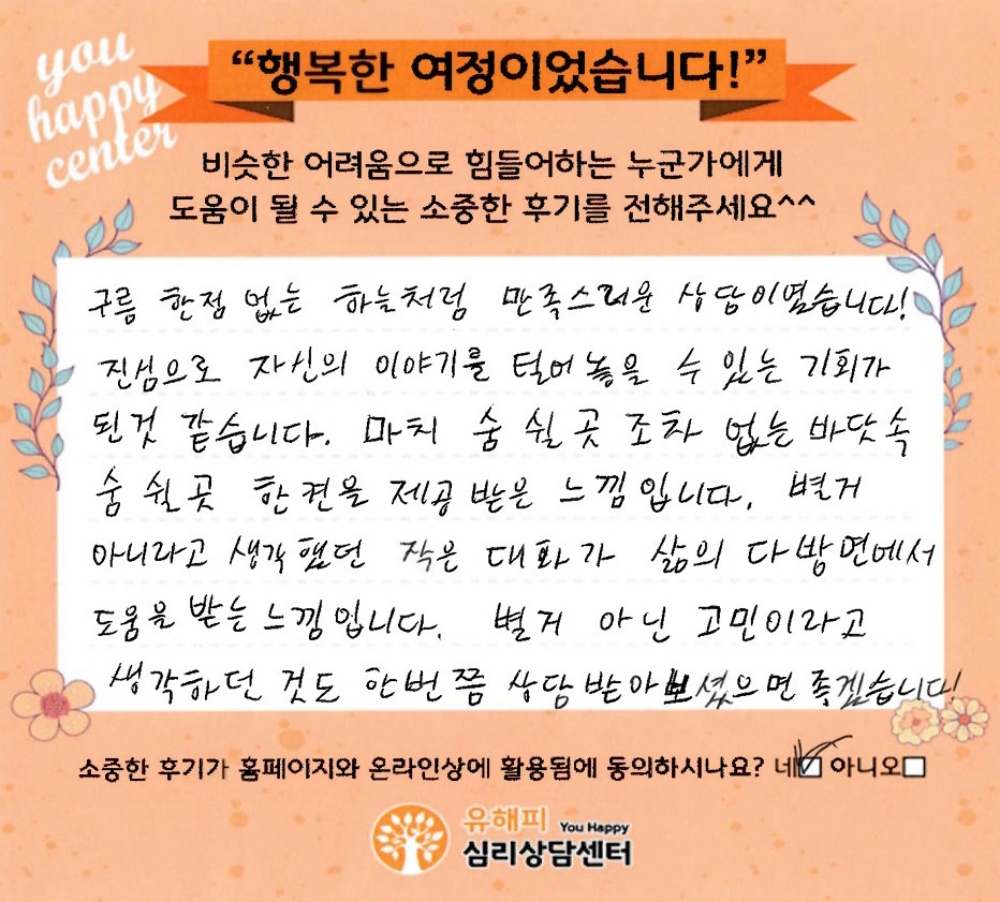 you
happy
center
“행복한 여정이었습니다!”
비슷한 어려움으로 힘들어하는 누군가에게
도움이 될 수 있는 소중한 후기를 전해주세요^^
구름 한점 없는 하늘처럼 만족스러운 상담이였습니다!
진심으로 자신의 이야기를 털어놓을 수 있는 기회가
된것 같습니다. 마치 숨 쉴 곳 조차 없는 바닷속
숨 쉴 곳 한켠을 제공 받은 느낌입니다. 별거
아니라고 생각했던 작은 대화가 삶의 다방면에서
도움을 받는 느낌입니다. 별거 아닌 고민이라고
생각하던 것도 한번쯤 상담 받아보셨으면 좋겠습니다!
소중한 후기가 홈페이지와 온라인상에 활용됨에 동의하시나요? 네☑ 아니오□
유해피 You Happy
심리상담센터